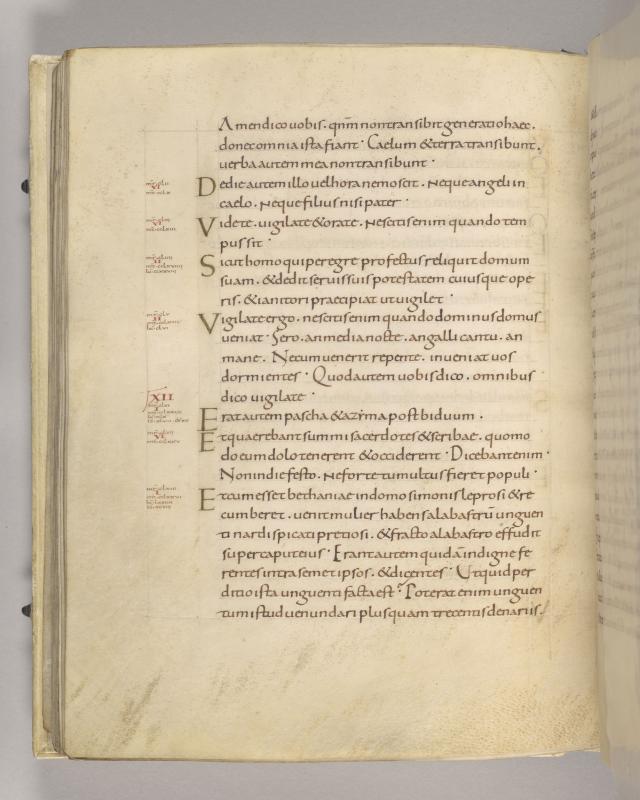 Amendico uobis. qnm nontransibit generatio haec.
donec omnia ista fiant· Caelum & terra transibunt.
uerba autem mea nontransibunt·
De die autem illo uel hora nemo scit. Neque angeli in
caelo. Neque filius nisi pater·
Videte. uigilate & orate. Nescitis enim quando tem
pus sit·
Sicut homo qui peregre profectus reliquit domum
suam. & dedit seruis suis potestatem cuiusque ope
ris. & ianitori praecipiat ut uigilet·
Vigilate ergo. nescitis enim quando dominus domus
ueniat· Sero. an media nocte. an galli cantu. an
mane. Ne cum uenerit repente. inueniat uos
dormientes· Quod autem uobis dico. omnibus
XII
dico uigilate·
Erat autem pascha & azyma post biduum.
Et quaerebant summi sacerdotes & scribae. quomo
do eum dolo tenerent & occiderent· Dicebant enim·
Non in die festo. Ne forte tumultus fieret populi·
Et cum esset bethaniae in domo simonis leprosi & re
cumberet. uenit mulier habens alabastrū unguen
ti nardi spicati pretiosi. & fracto alabastro effudit
super caput eius· Erant autem quidā indigne fe
rentes intra semet ipsos. & dicentes· Ut quid per
ditio ista unguenti facta est? Poterat enim unguen
tum istud uenundari plus quam trecentis denariis.